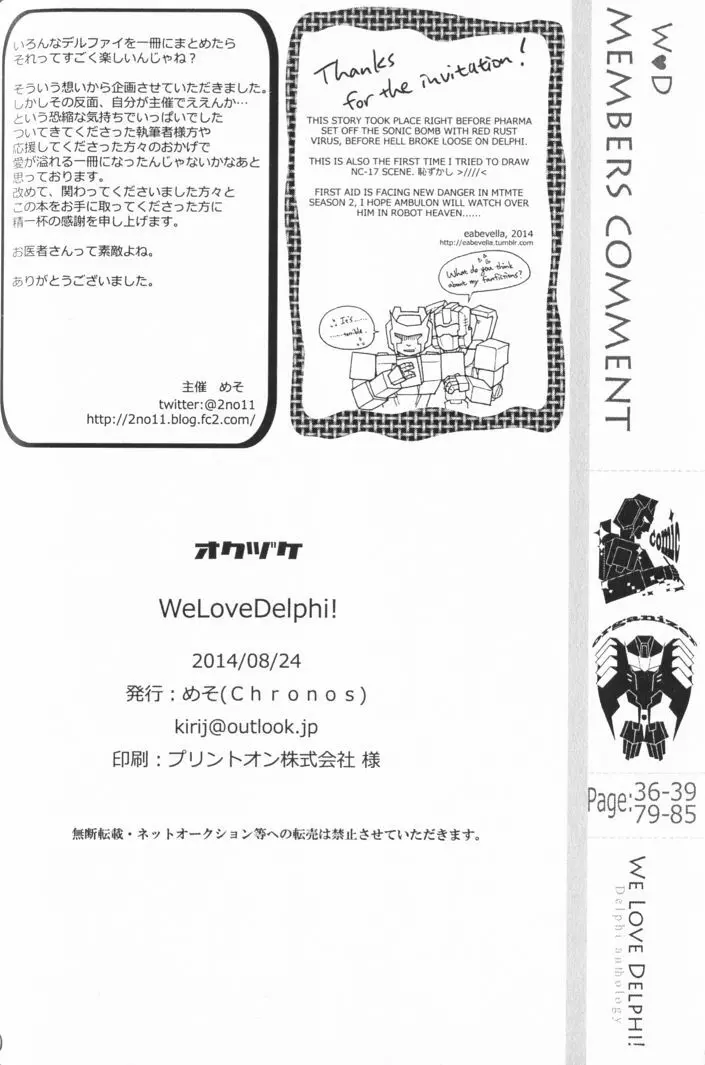 いろんなデルファイを一冊にまとめたら
それってすごく楽しいんじゃね？
そういう想いから企画させていただきました。
しかしその反面、自分が主催でええんか…
という恐縮な気持ちでいっぱいでした
ついてきてくださった執筆者様方や
応援してくださった方々のおかげで
愛が溢れる一冊になったんじゃないかなあと
思っております。
改めて、関わってくださいました方々と
この本をお手に取ってくださった方に
精一杯の感謝を申し上げます。
お医者さんって素敵よね。
ありがとうございました。
主催　めそ
twitter:@2no11
http://2no11.blog.fc2.com/
Thanks
for the invitation!
THIS STORY TOOK PLACE RIGHT BEFORE PHARMA
SET OFF THE SONIC BOMB WITH RED RUST
VIRUS, BEFORE HELL BROKE LOOSE ON DELPHI.
THIS IS ALSO THE FIRST TIME I TRIED TO DRAW
NC-17 SCENE. 恥ずかし >////<
FIRST AID IS FACING NEW DANGER IN MTMTE
SEASON 2, I HOPE AMBULON WILL WATCH OVER
HIM IN ROBOT HEAVEN......
eabevella, 2014
http://eabevella.tumblr.com
What do you think
about my fanfictions?
It's......
......terrible.
W♥D
MEMBERS COMMENT
comic
organizer
Page:36-39
79-85
WE LOVE DELPHI!
Delphi anthology
オクヅケ
WeLoveDelphi!
2014/08/24
発行：めそ(Ｃｈｒｏｎｏｓ)
kirij@outlook.jp
印刷：プリントオン株式会社 様
無断転載・ネットオークション等への転売は禁止させていただきます。